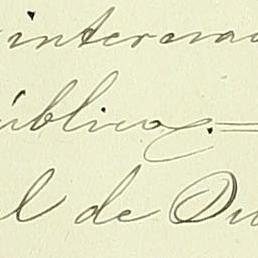 interesa
ública.=
l de Du